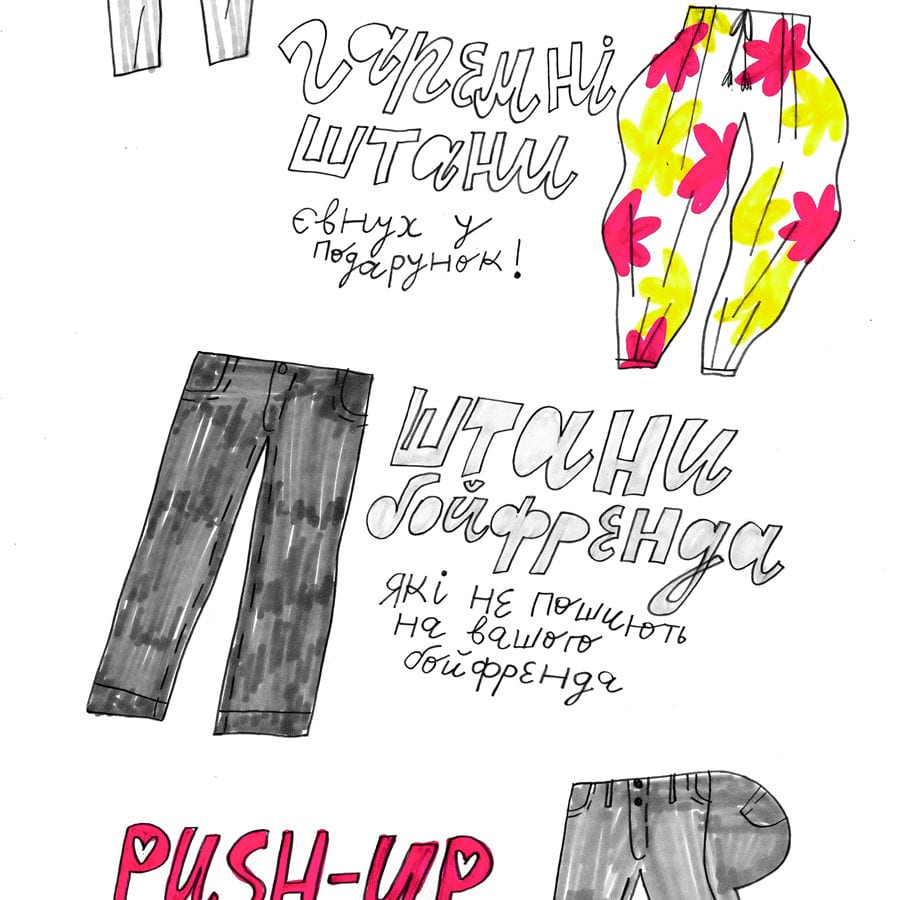 гаремні
штани
євнух у
подарунок!
штани
бойфренда
які не пошиють
на вашого
бойфренда
PUSH-UP